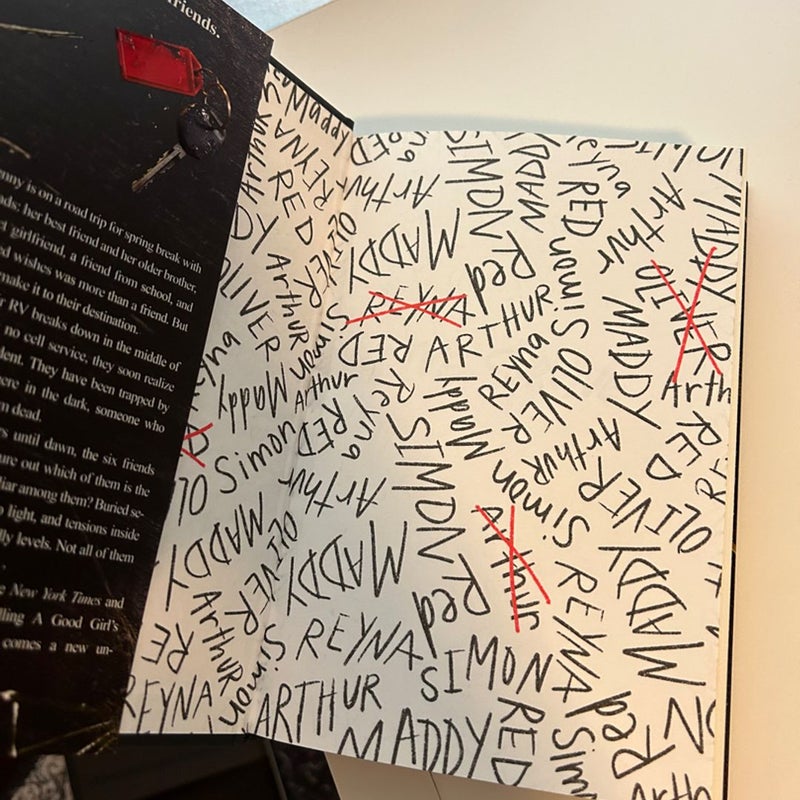 riends.
enny is on a road trip for spring break with
ads: her best friend and her older brother,
girlfriend, a friend from school, and
d wishes was more than a friend. But
make it to their destination.
RV breaks down in the middle of
no cell service, they soon realize
dent. They have been trapped by
ere in the dark, someone who
m dead.
s until dawn, the six friends
ure out which of them is the
liar among them? Buried se-
light, and tensions inside
ly levels. Not all of them
New York Times and
lling A Good Girl's
comes a new un-
Maddy
Arthur
REYNA
RED
OLIVER
Arthur
Simon
OLIVER
eyna
Maddy
Arthur
RED
Simon
OL
MADDY
OLIVER
Arthur
RE
Simon
REYNA
RED
Arthur
SIMON
MADDY
RED
Simon
Arthur
MADDY
MADDY
Red
REYNA
OLIVER
RED
ARTHUR
MADDY
Arth
Reyna
Maddy
REYNA
OLIVER
Arthur
RED
SIMON
Simon
Arthur
OLIVER
MADDY
Red
Arthur
REYNA
MADDY
REYNA
SIMON
ARTHUR
MADDY
RED
Sim
Red
Arth